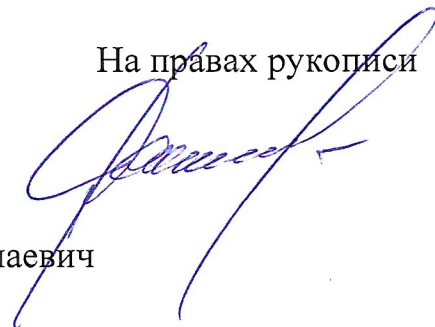 На правах рукописи
лаевич